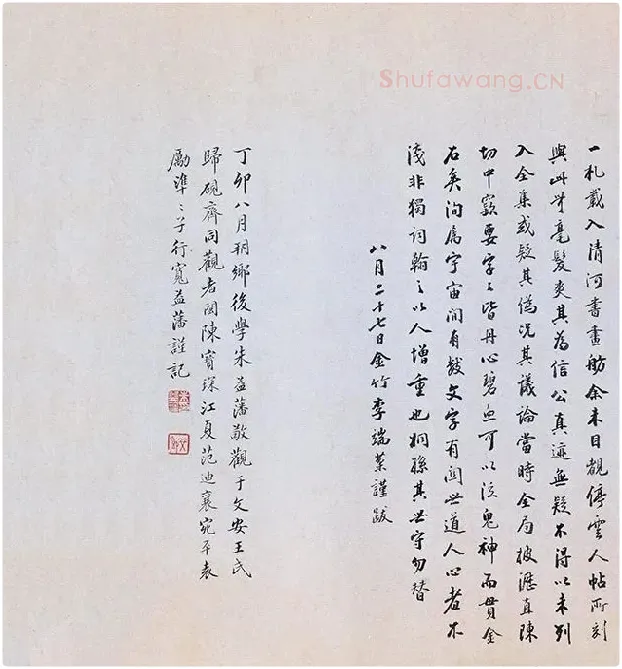 Shufawang.CN
一札載入清河書畫舫余未目覩停雲人帖所刻
與此毫髮爽其為信公真迹無疑不得以未列
入全集或疑其偽況其議論當時全局披瀝直陳
切中窾要字〻皆丹心碧血可以泣鬼神而貫金
石矣洵為宇宙間有數文字有關世道人心者不
淺非獨詞翰之以人增重也孫其世守勿替
八月二十七日金竹李端棻謹跋
丁卯八月朔鄉後學朱益藩敬觀于文安王氏
歸硯齋同觀者閩陳寶琛江夏范迪襄宛平袁
勵準〻子行寬益藩謹記